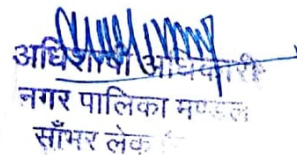 अधिशाषी अधिकारी
नगर पालिका मण्डल
साँभर लेक